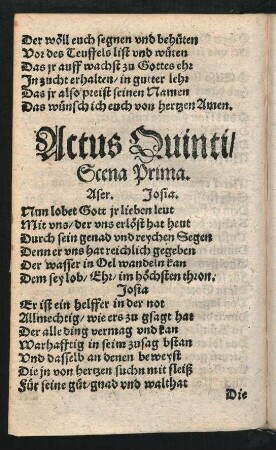 Der wöll euch segnen vnd behüten
Vor des Teuffels list vnd wüten
Das jr auff wachst zu Gottes ehr
In zucht erhalten / in gutter lehr
Das jr also preist seinen Namen
Das wünsch ich euch von hertzen Amen.
Actus Quinti /
Scena Prima.
Aser. Josia.
Nun lobet Gott jr lieben leut
Mit vns / der vns erlöst hat heut
Durch sein genad vnd reychen Segen
Denn er vns hat reichlich gegeben
Der wasser in Oel wandeln kan
Dem sey lob / Ehr / im höchsten thron.
Josia
Er ist ein helffer in der not
Allmechtig / wie ers zu gsagt hat
Der alle ding vermag vnd kan
Warhafftig in seim zusag bstan
Vnd dasselb an denen beweyst
Die jn von hertzen suchn mit fleiß
Für seine güt / gnad vnd walthat
Die